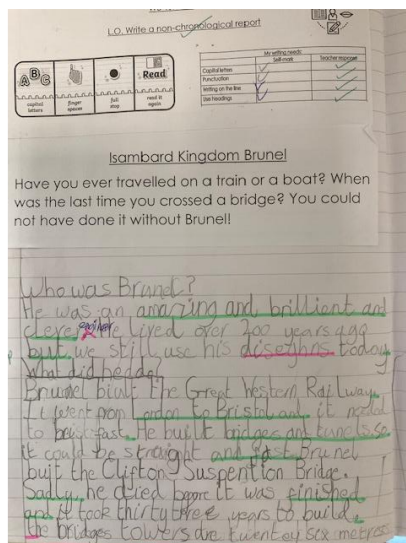 L.O. Write a non-chronological report
My writing needs:
Self-mark Teacher response
Capital letters
Punctuation
Writing on the line
Use headings
ABC
Read
capital letters
finger spaces
full stop
read it again
Isambard Kingdom Brunel
Have you ever travelled on a train or a boat? When
was the last time you crossed a bridge? You could
not have done it without Brunel!
Who was Brunel?
He was an amazing and brilliant and
clever He lived over 200 years ago
but we still use his today
What did he do?
Brunel biult the Great Western Railway.
It went from London to Bristol and it
to be fast. He built bridges and tunels so
it could be straight and fast. Brunel
buit the Clifton Suspention Bridge.
Sadly, he died before it was finished
and it took thirty three years to build.
The bridges towers are twentey sex metres